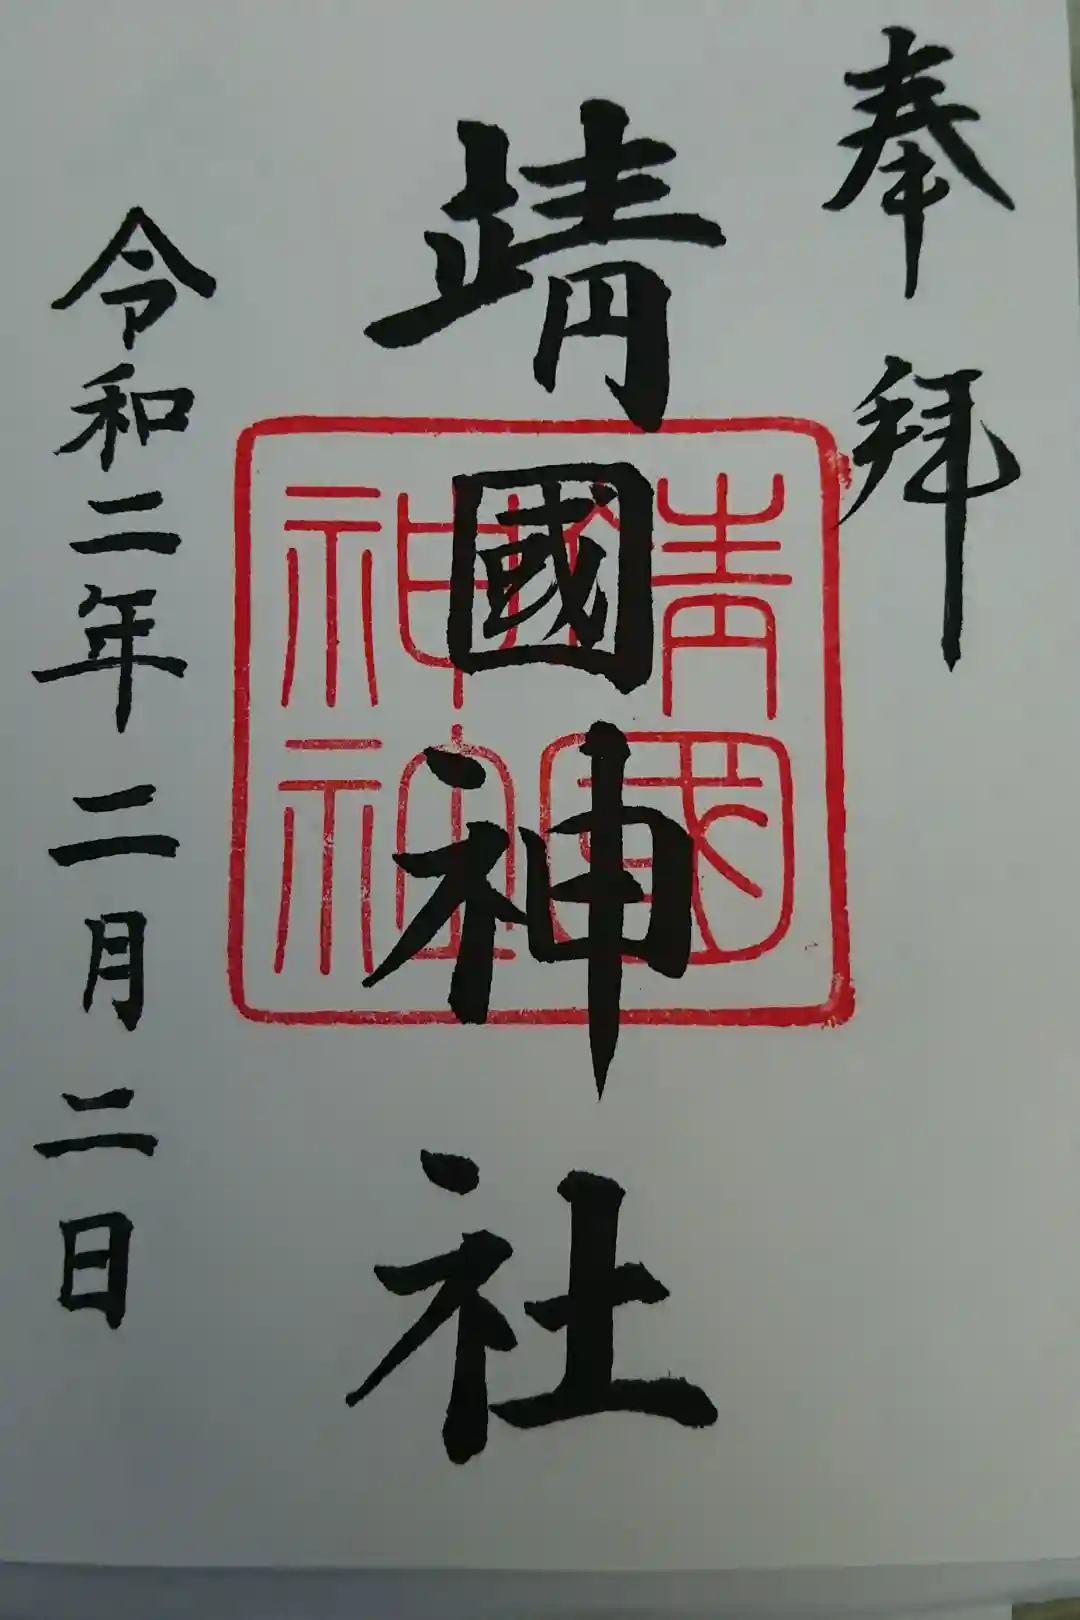 奉拝
靖國神社
靖國
神社
令和二年二月二日